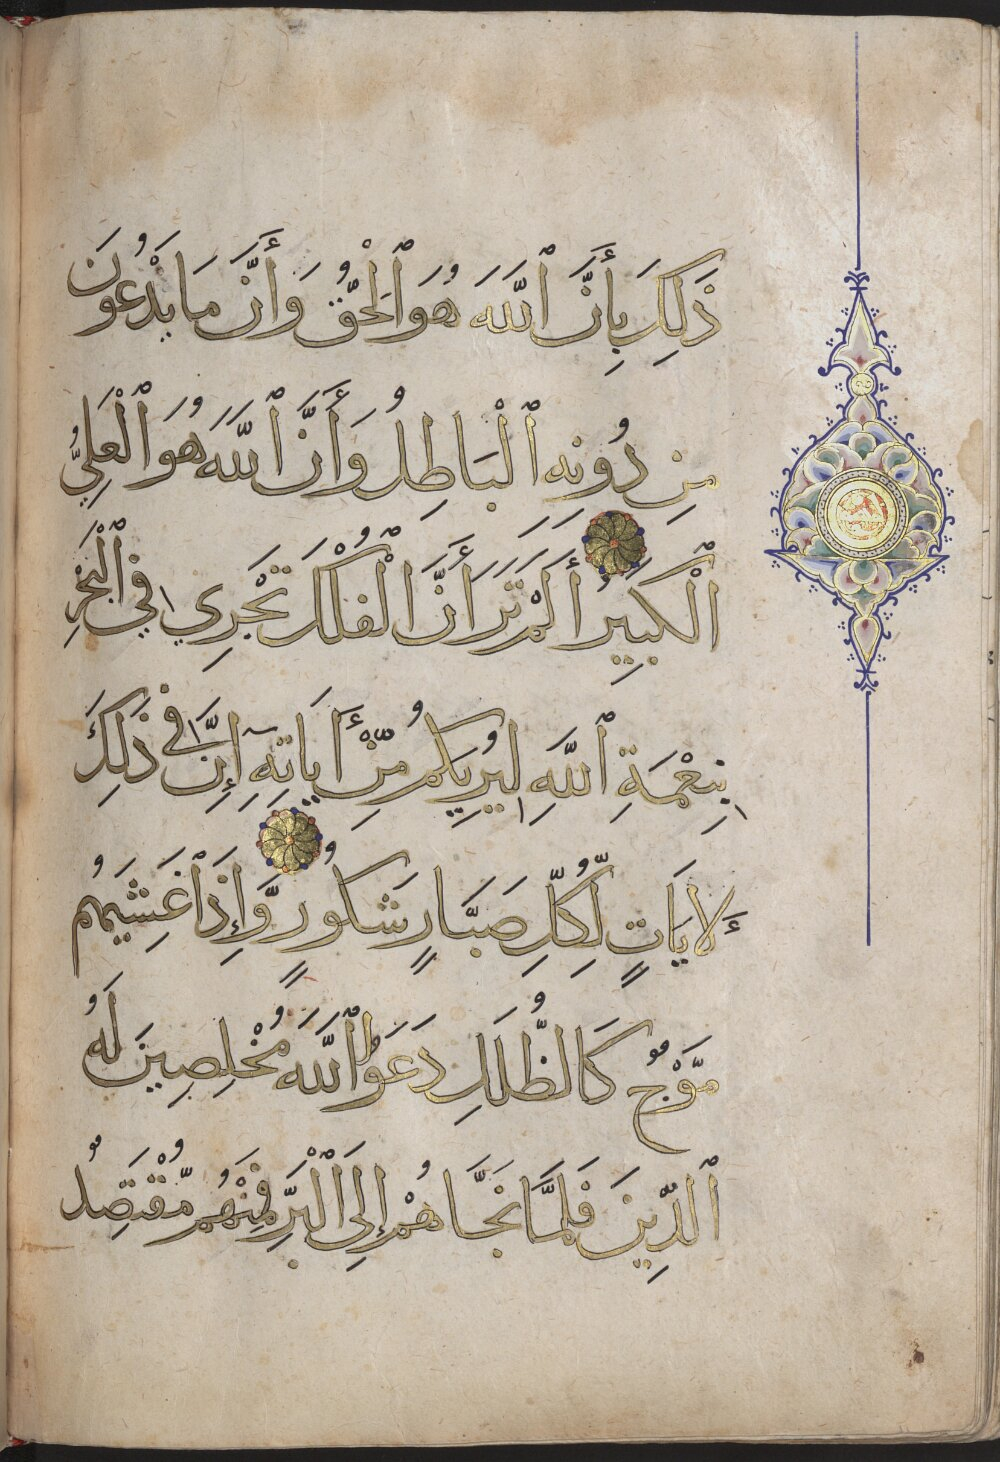 ذَلِكَ بِأَنَّ ٱللَّهَ هُوَ ٱلْحَقُّ وَأَنَّ مَا يَدْعُونَ
مِن دُونِهِ ٱلْبَاطِلُ وَأَنَّ ٱللَّهَ هُوَ ٱلْعَلِيُّ
ٱلْكَبِيرُ أَلَمْ تَرَ أَنَّ ٱلْفُلْكَ تَجْرِي فِي ٱلْبَحْرِ
بِنِعْمَةِ ٱللَّهِ لِيُرِيَكُم مِّنْ أَيَاتِهِٓ إِنَّ فِي ذَلِكَ
لَأَيَاتٍ لِّكُلِّ صَبَّارٍ شَكُورٍ وَّإِذَا غَشِيَهُم
مَّوْجٌ كَالظُّلَلِ دَعَوُا ٱللَّهَ مُخْلِصِينَ لَهُ
ٱلدِّينَ فَلَمَّا نَجَّاهُمْ إِلَى ٱلْبَرِّ فَمِنْهُم مُّقْتَصِدٌ